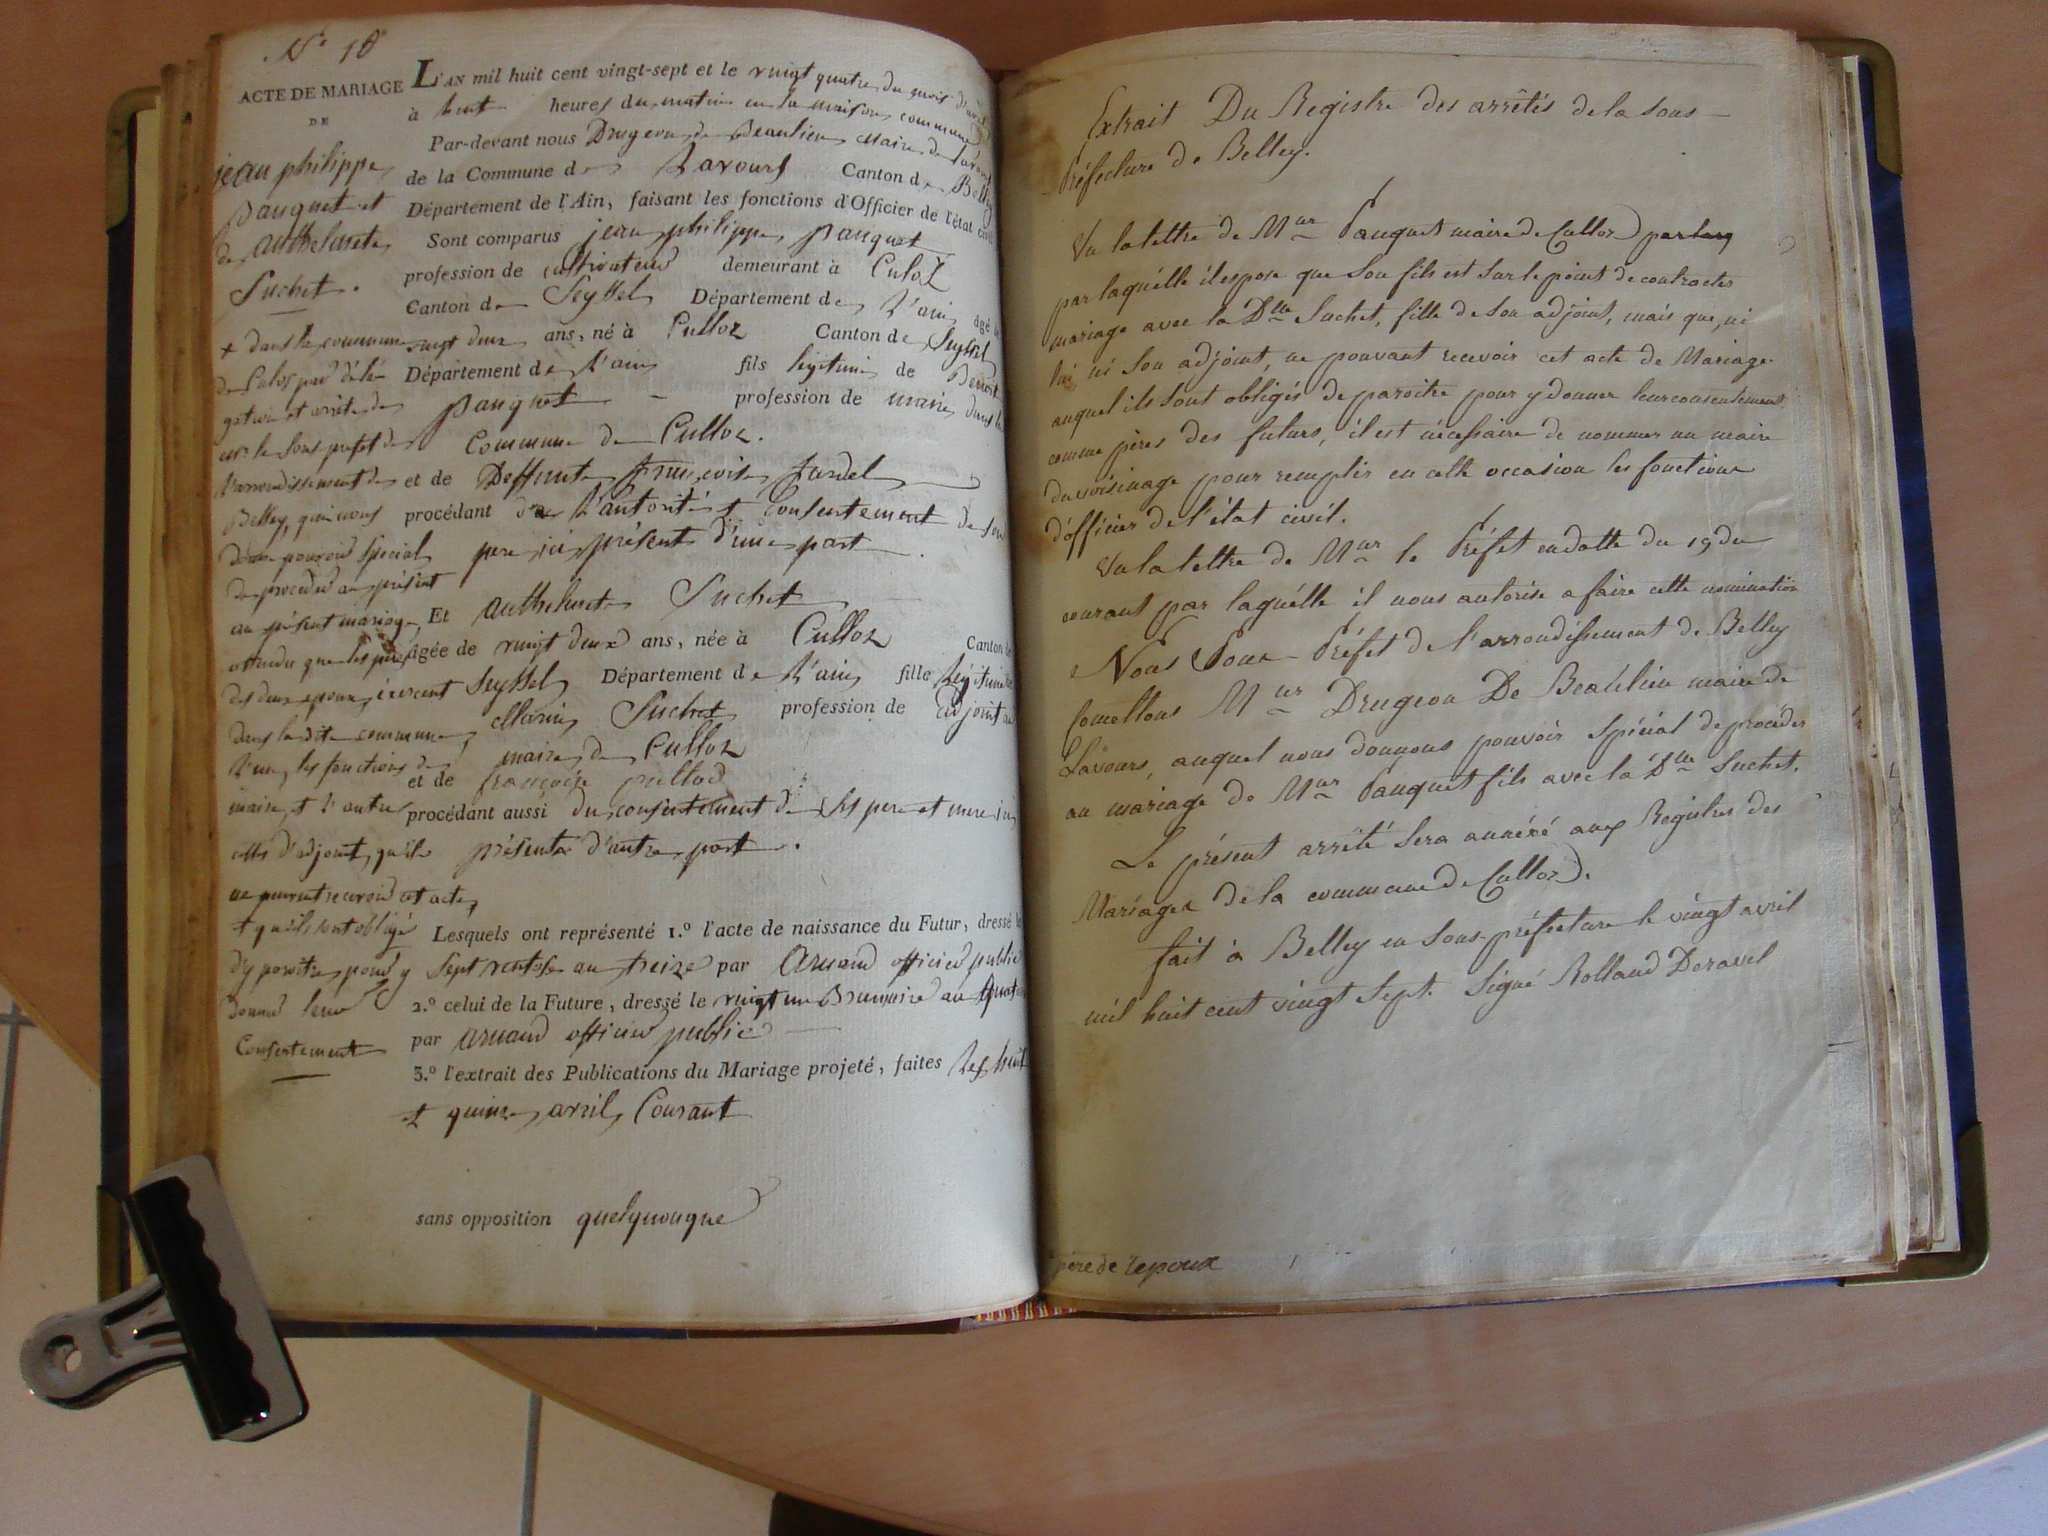 N° 18
ACTE DE MARIAGE
DE
jean philippe
pauquet et
de anthelmete
Suchet.
+ dans la commune
de Culoz par délé-
gation et arrête de
mr le sous prefet de
l'arrondissement de
Belley, qui nous
donne pouvoir spécial
de proceder au présent
au présent mariage
attendu que les peres
des deux epoux, exercent
dans la dite commune,
l'un, les fonctions de
maire, et l'autre
celles d'adjoint, qu'ils
ne peuvent recevoir cet acte,
et qu'ils sont obligé
d'y paroitre pour y
donner leur
Consentement
L'AN mil huit cent vingt-sept et le vingt quatre du mois d'avril
à huit heures du matin en la maison commune
Par-devant nous Drugeon de Beaulieu Maire de Lavours
de la Commune de Lavours Canton de Belley
Département de l'Ain, faisant les fonctions d'Officier de l'état civil
Sont comparus jean philippe pauquet
profession de cultivateur demeurant à Culoz
Canton de Seyssel Département de L'ain âgé de
vingt deux ans, né à Culloz Canton de Seyssel
Département de L'ain fils légitime de Benoit
pauquet - profession de maire dans la
Commune de Culloz.
et de Deffunte françoise Jardel
procédant de L'autorité et Consentement de son
pere ici présent d'une part.
Et anthelmete Suchet
âgée de vingt deux ans, née à Culloz Canton de
Seyssel Département de L'ain fille Légitime
Marin Suchet profession de adjoint au
maire de Culloz
et de françoise
procédant aussi du consentement de ses pere et mere ici
présents d'autre part.
Lesquels ont représenté 1.° l'acte de naissance du Futur, dressé le
Sept ventose an treize par Arnaud officier public
2.° celui de la Future, dressé le vingt un Brumaire an Quatorze
par Arnaud officier public
3.° l'extrait des Publications du Mariage projeté, faites Les huit
et quinze avril Courant
sans opposition quelquonque
Extrait Du Registre des arrêtés de la Sous-
Préfecture de Belley.
Vu la lettre de Mur Pauquet maire de Culloz par laq
par laquélle il expose que Son fils est Sur le point de contracter
mariage avec la Dlle Suchet, fille de Son adjoint, mais que, ni
lui ni Son adjoint, ne pouvant recevoir cet acte de Mariage
auquel ils Sont obligés de paroitre pour y donner leur consentement
comme pères des futurs, il est nécessaire de nommer un maire
du voisinage pour remplir en cette occasion les fonctions
d'officier de l'état civil.
Vu la lettre de Mur le Préfet en datte du 19 du
courant par laquélle il nous autorise a faire cette nomination
Nous Sous-Préfet de l'arrondissement de Belley
Comettons Mur Drugeon De Beaulieu maire de
Lavours, auquel nous donnons pouvoir Spécial de procéder
au mariage de Mur Pauquet fils avec la Dlle Suchet.
Le présent arrêté Sera annéxé aux Registres des
Mariages de la commune de Culloz.
fait à Belley en Sous-préfecture le vingt avril
mil huit cent vingt Sept. Signé Rolland Deravel
père de l'epoux